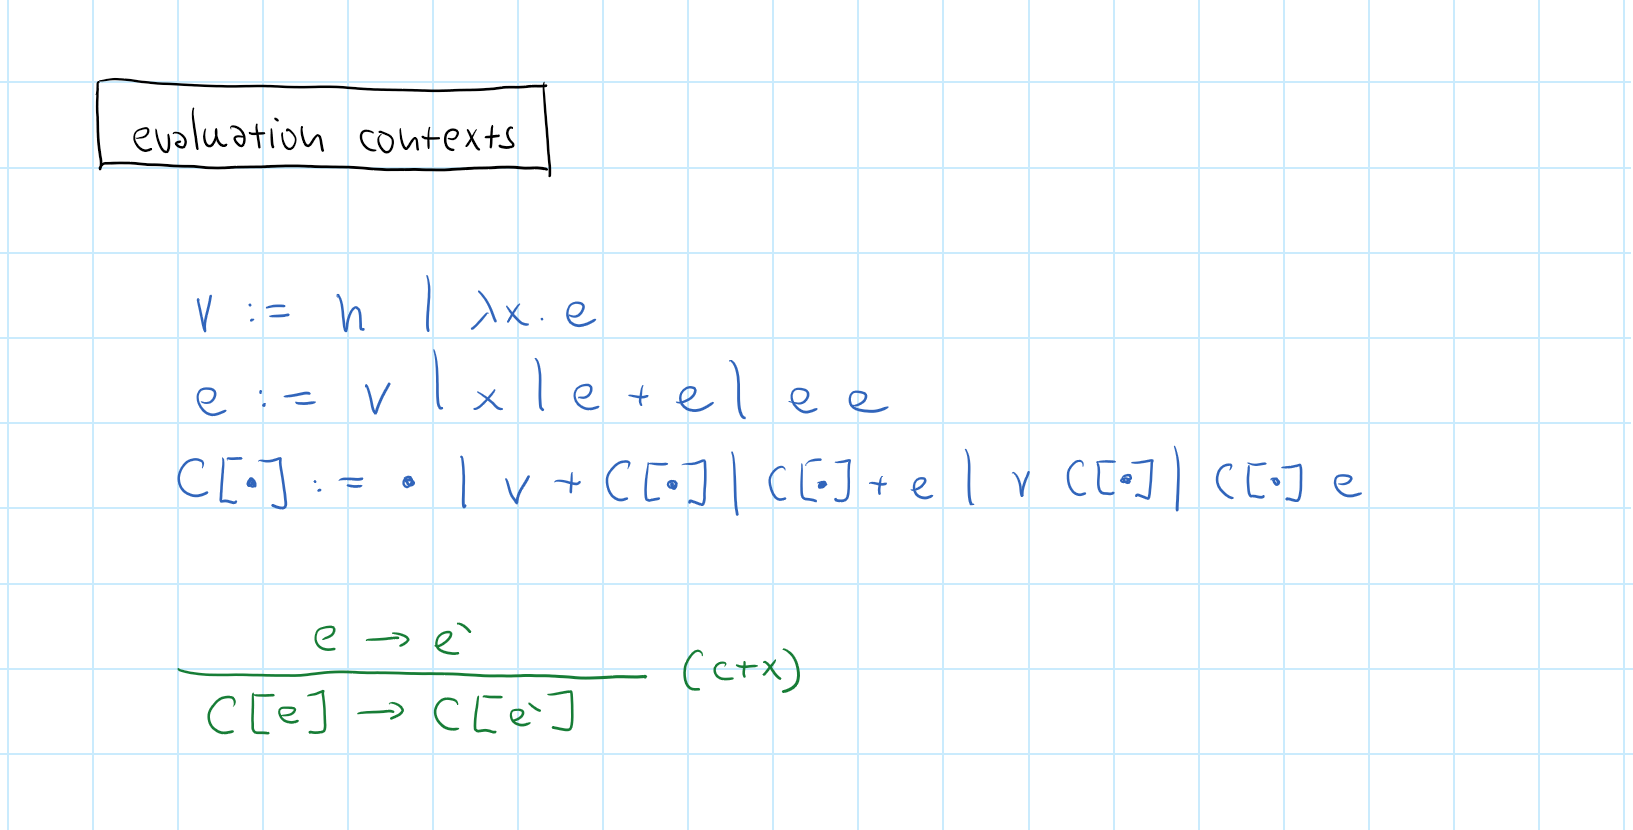 evaluation contexts
v := n | λx. e
e := v | x | e + e | e e
C[•] := • | v + C[•] | C[•] + e | v C[•] | C[•] e
e → e`
C[e] → C[e`] (ctx)